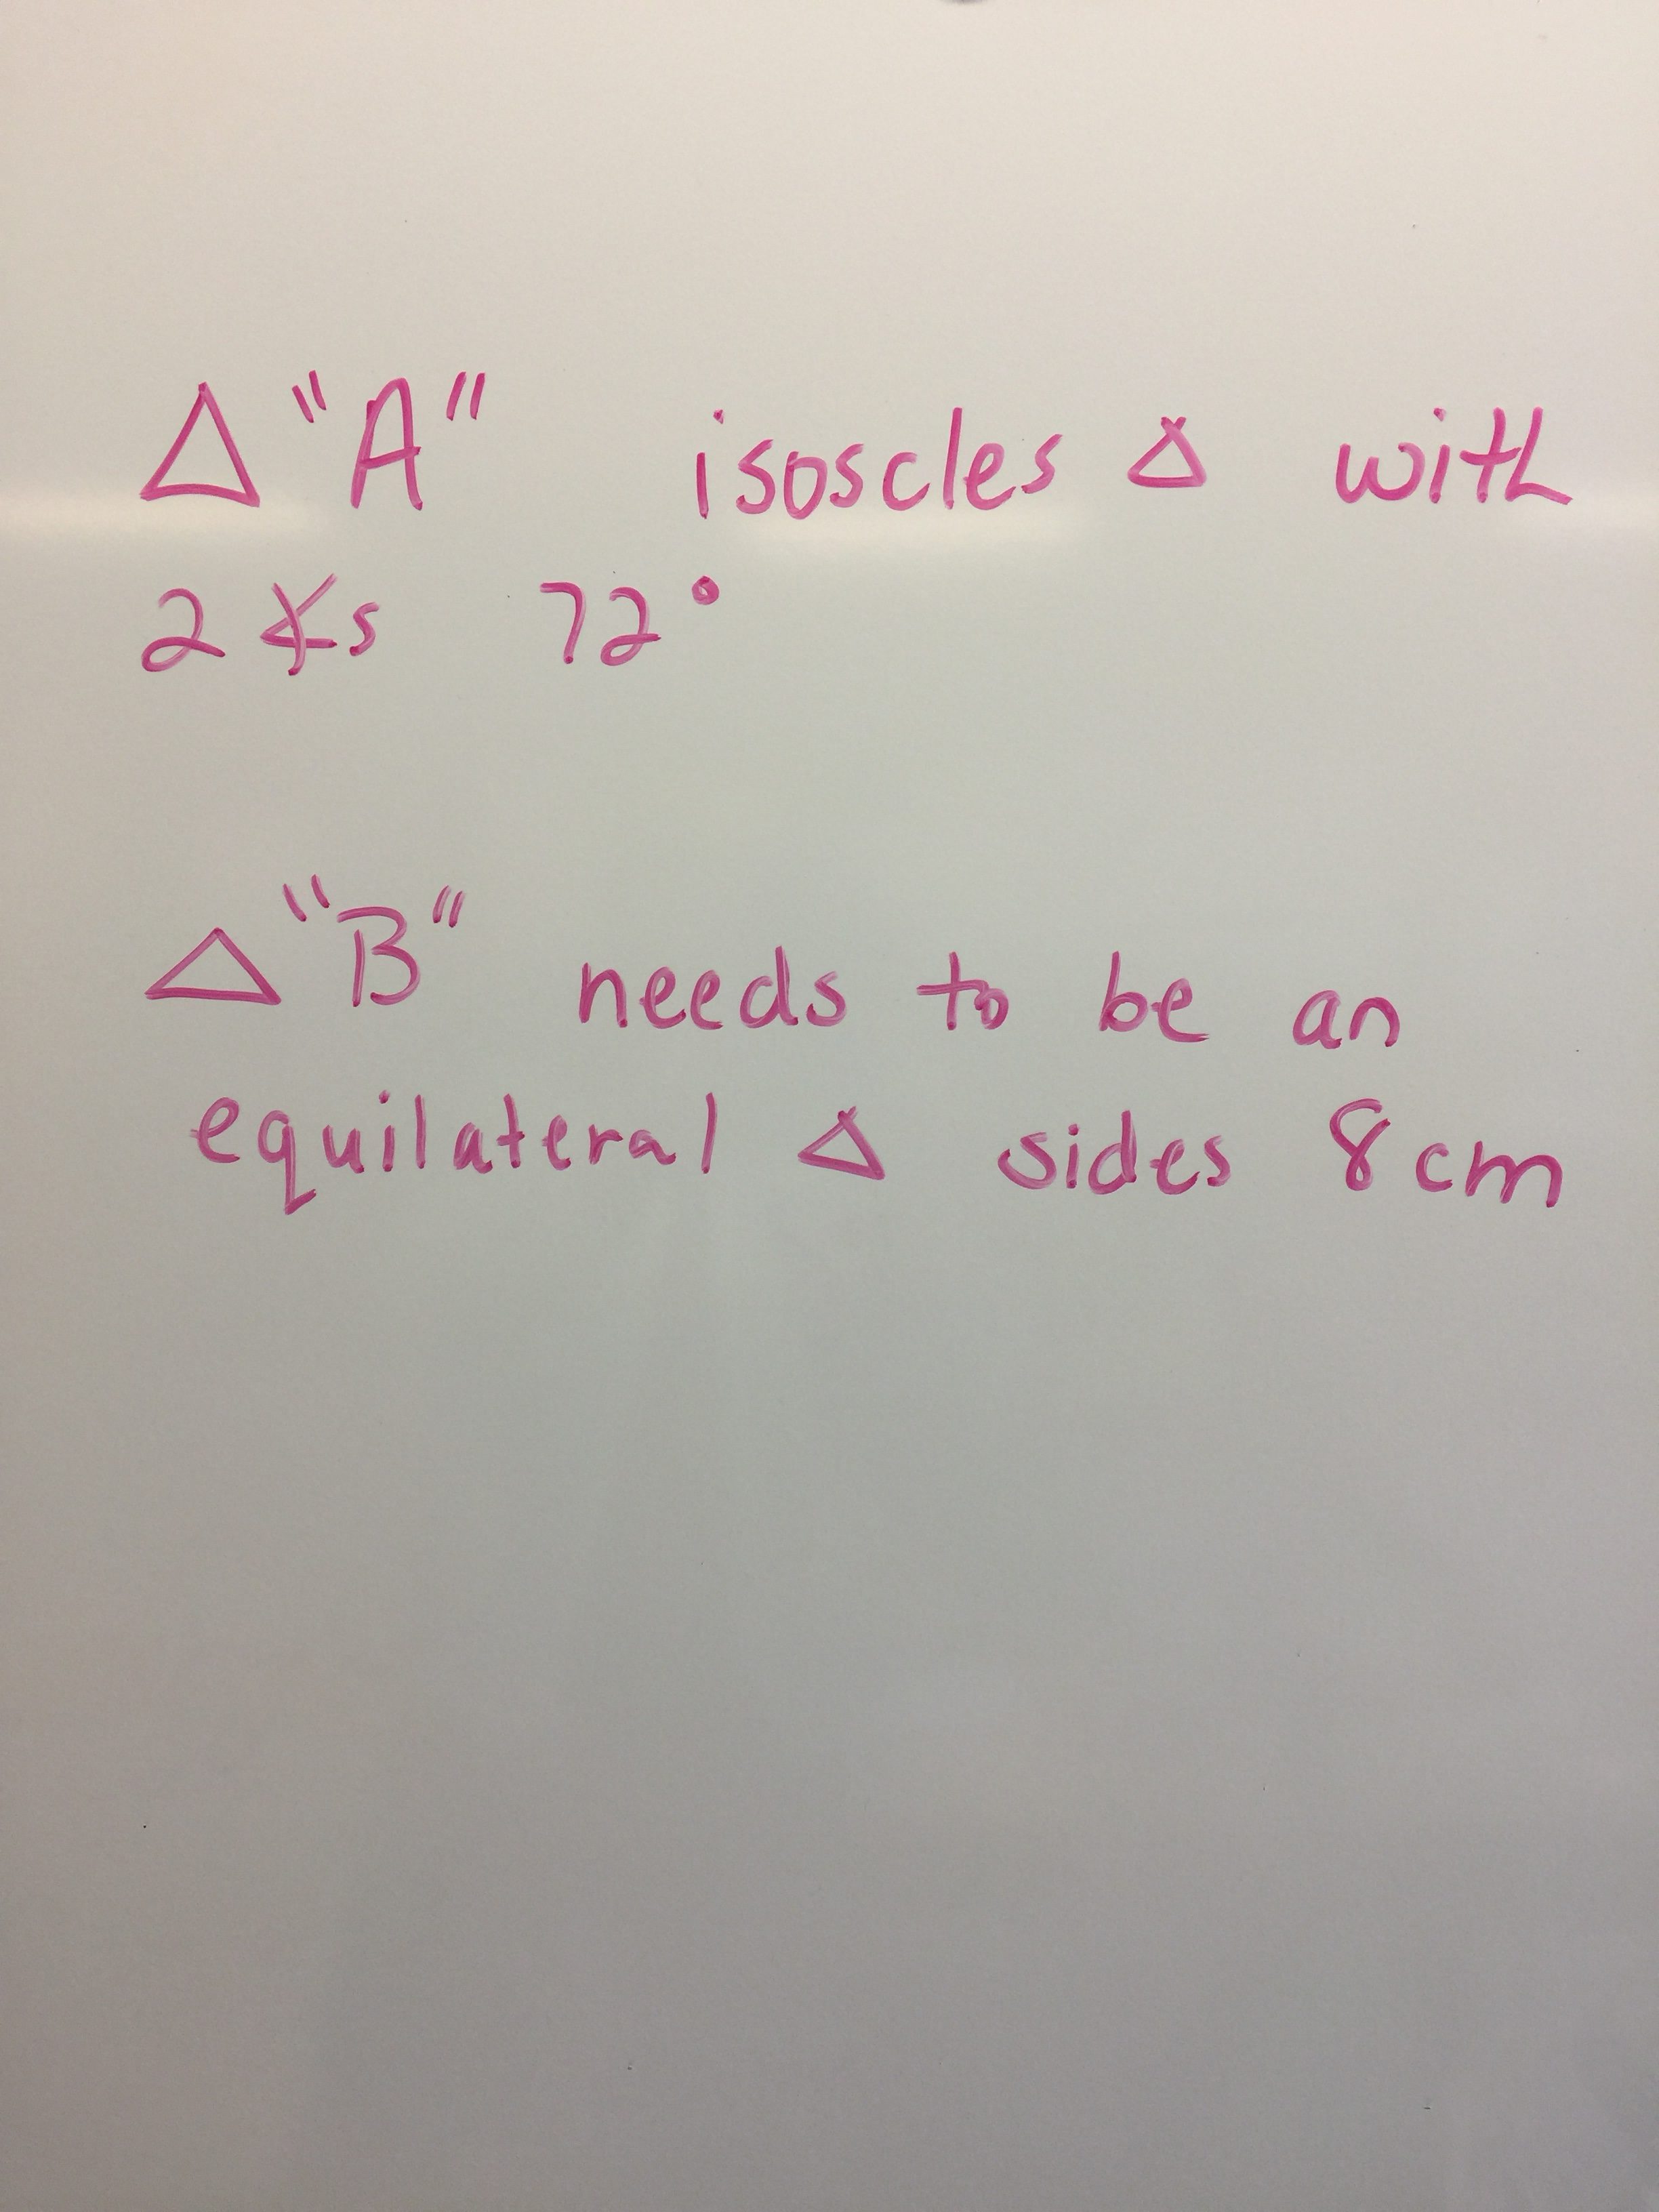 △ "A" isoscles △ with
2 ∡s 72°
△ "B" needs to be an
equilateral △ sides 8cm